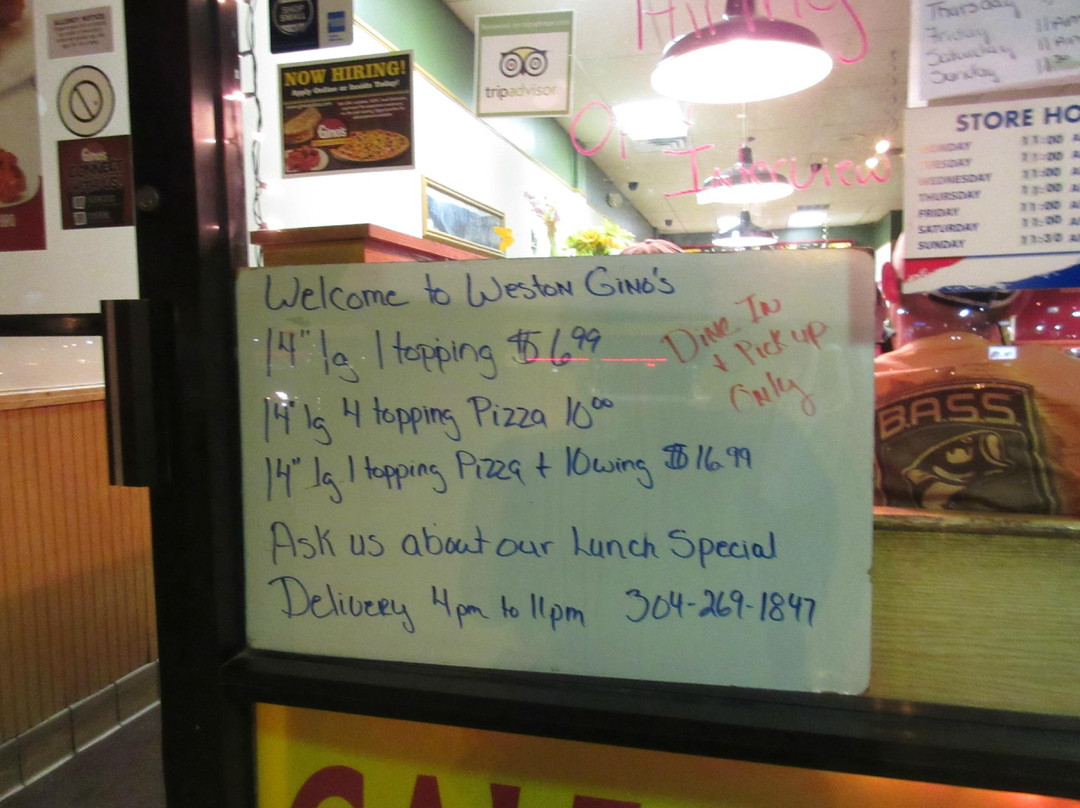 ALLERGY NOTICE
SHOP
SMALL
NOW HIRING!
Apply Online or Inside Today!
Gino's
tripadvisor
Hiring
On
Interview
Thursday
Friday
Saturday
Sunday
STORE HO
MONDAY 11:00 A
TUESDAY 11:00 A
WEDNESDAY 11:00 A
THURSDAY 11:00 A
FRIDAY 11:00 A
SATURDAY 11:00 A
SUNDAY 11:30 A
Gino's
CONNECT
Welcome to Weston Gino's
14" lg 1 topping $6.99
Dine In
+ Pick up
Only
14" lg 4 topping Pizza 10.00
14" lg 1 topping Pizza + 10 wing $16.99
Ask us about our Lunch Special
Delivery 4pm to 11pm 304-269-1847
B.A.S.S.